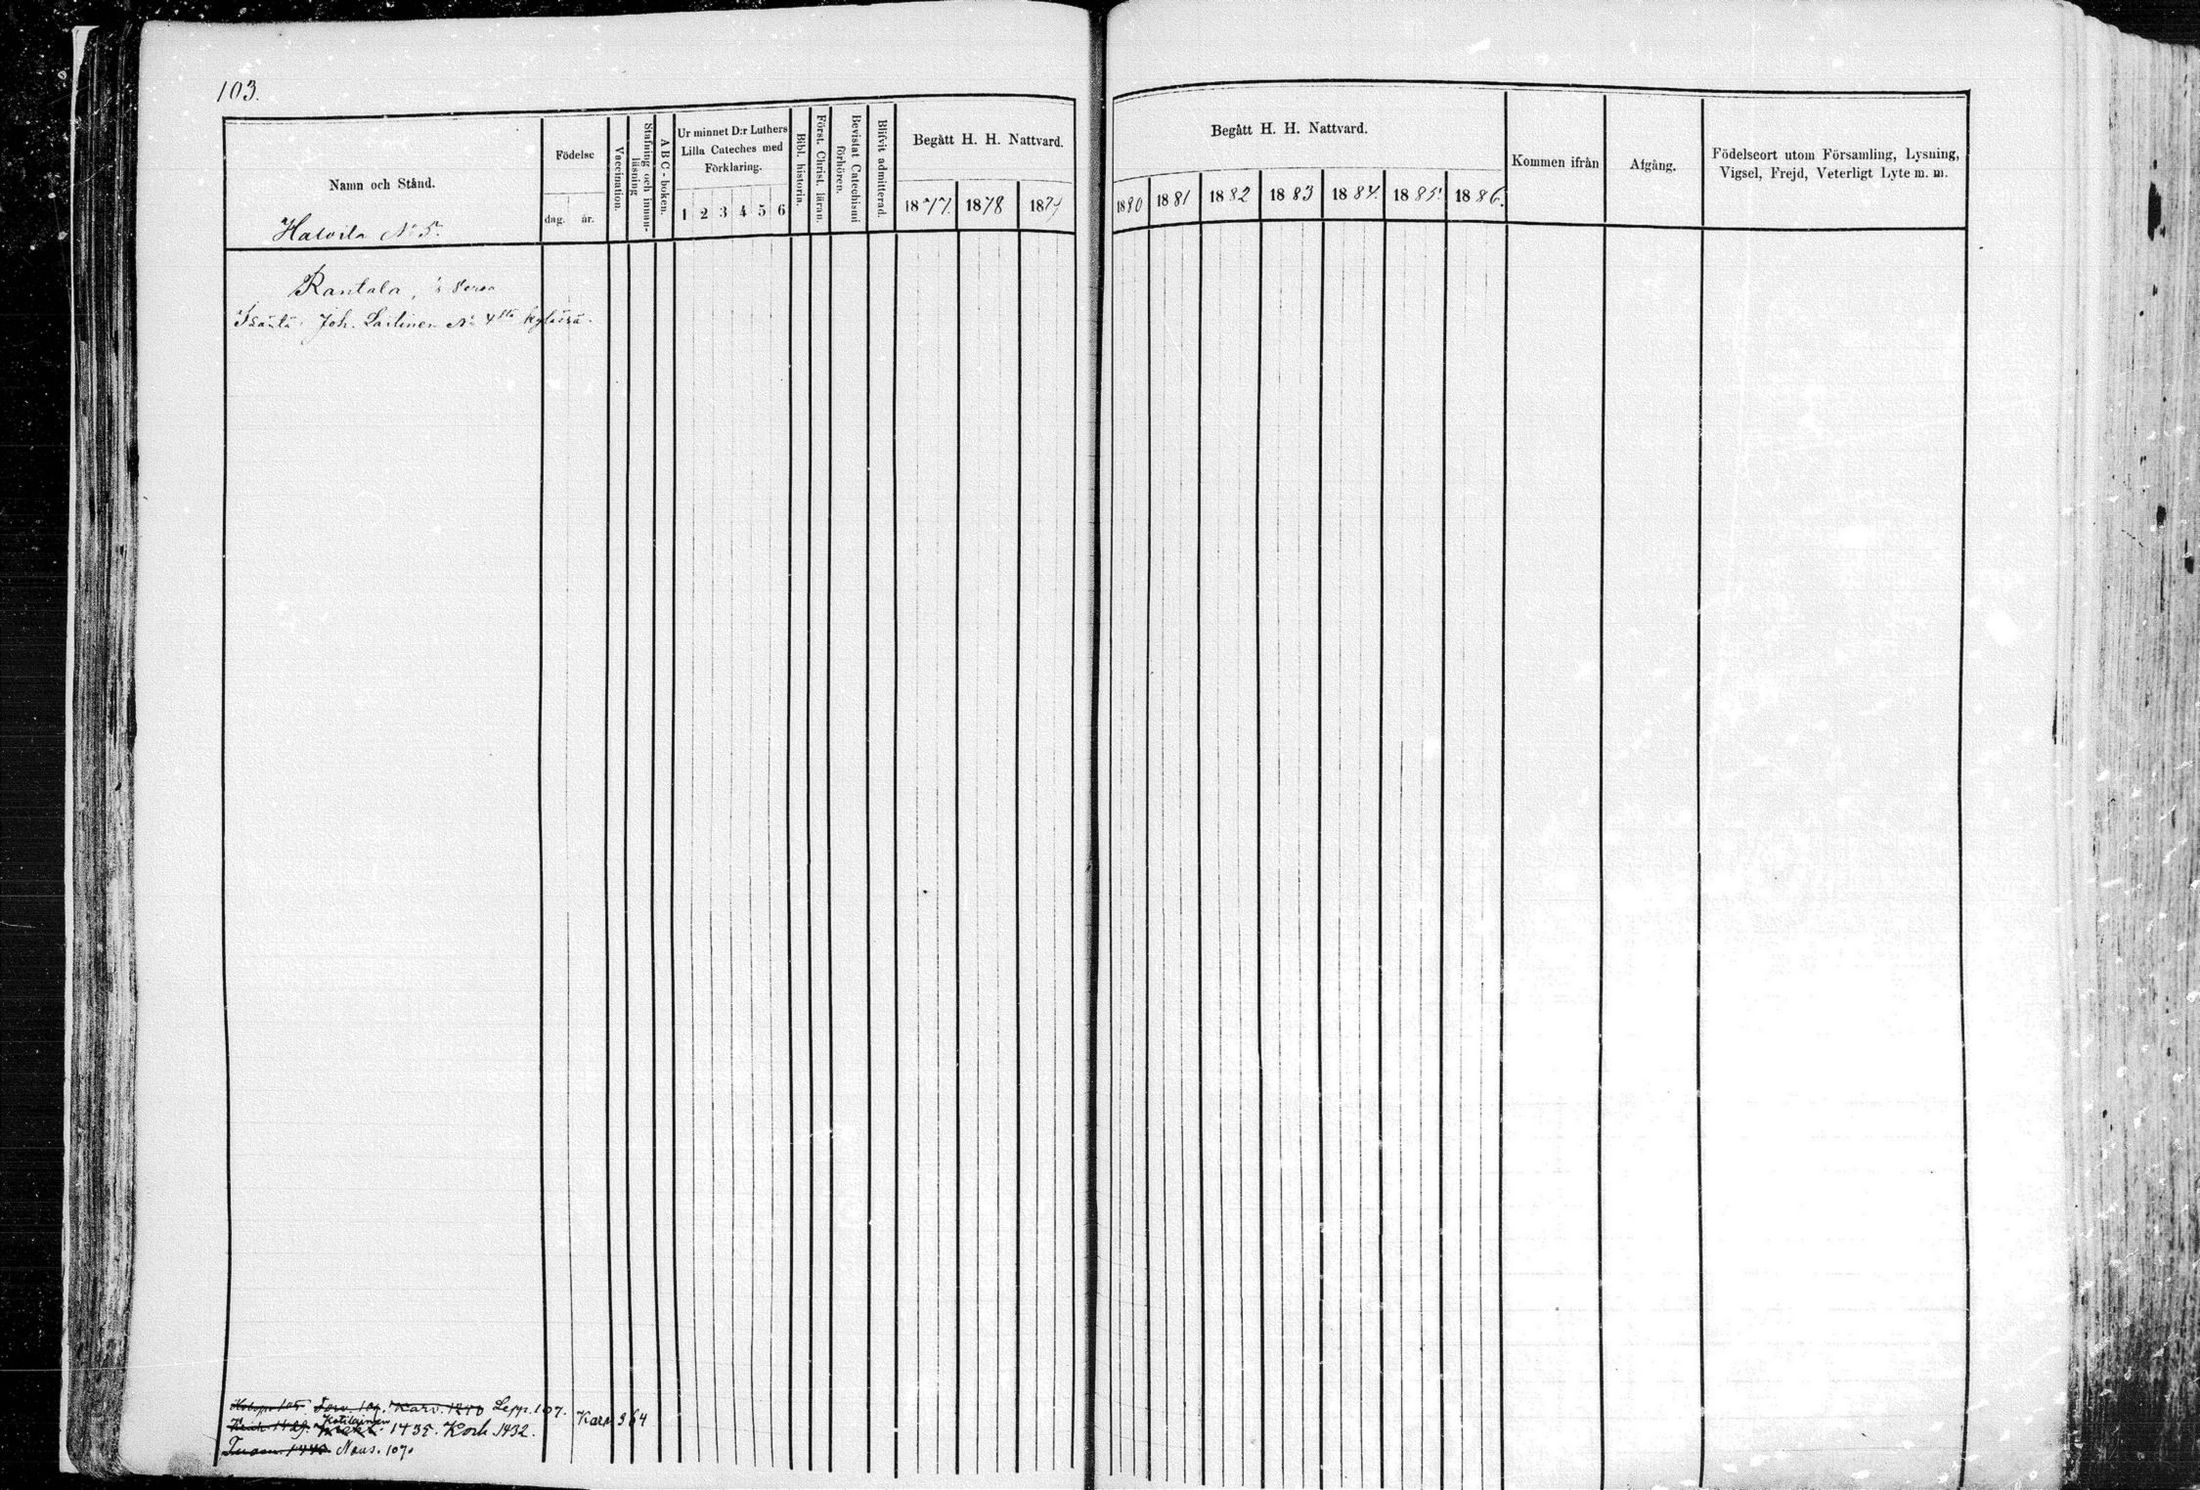 103.
Namn och Stånd.
Födelse
dag. år.
Vaccination.
Stafning och innan-
läsning
A B C - boken.
Ur minnet D:r Luthers
Lilla Cateches med
Förklaring.
1 2 3 4 5 6
Bibl. historia.
Först. Christ. läran.
Bevistat Catechismi
förhören.
Blifvit admitterad.
Begått H. H. Nattvard.
1877. 1878 1879
Begått H. H. Nattvard.
1880 1881 1882 1883 1884. 1885. 1886.
Kommen ifrån
Afgång.
Födelseort utom Församling, Lysning,
Vigsel, Frejd, Veterligt Lyte m. m.
No 5.
Rantala,
Isäntä Joh. Lailinen No 4 kylässä.
Karv. 1240 Lepp. 107.
Kotilainen
1435. Kork 1432.
Karv 364
Naus. 1070